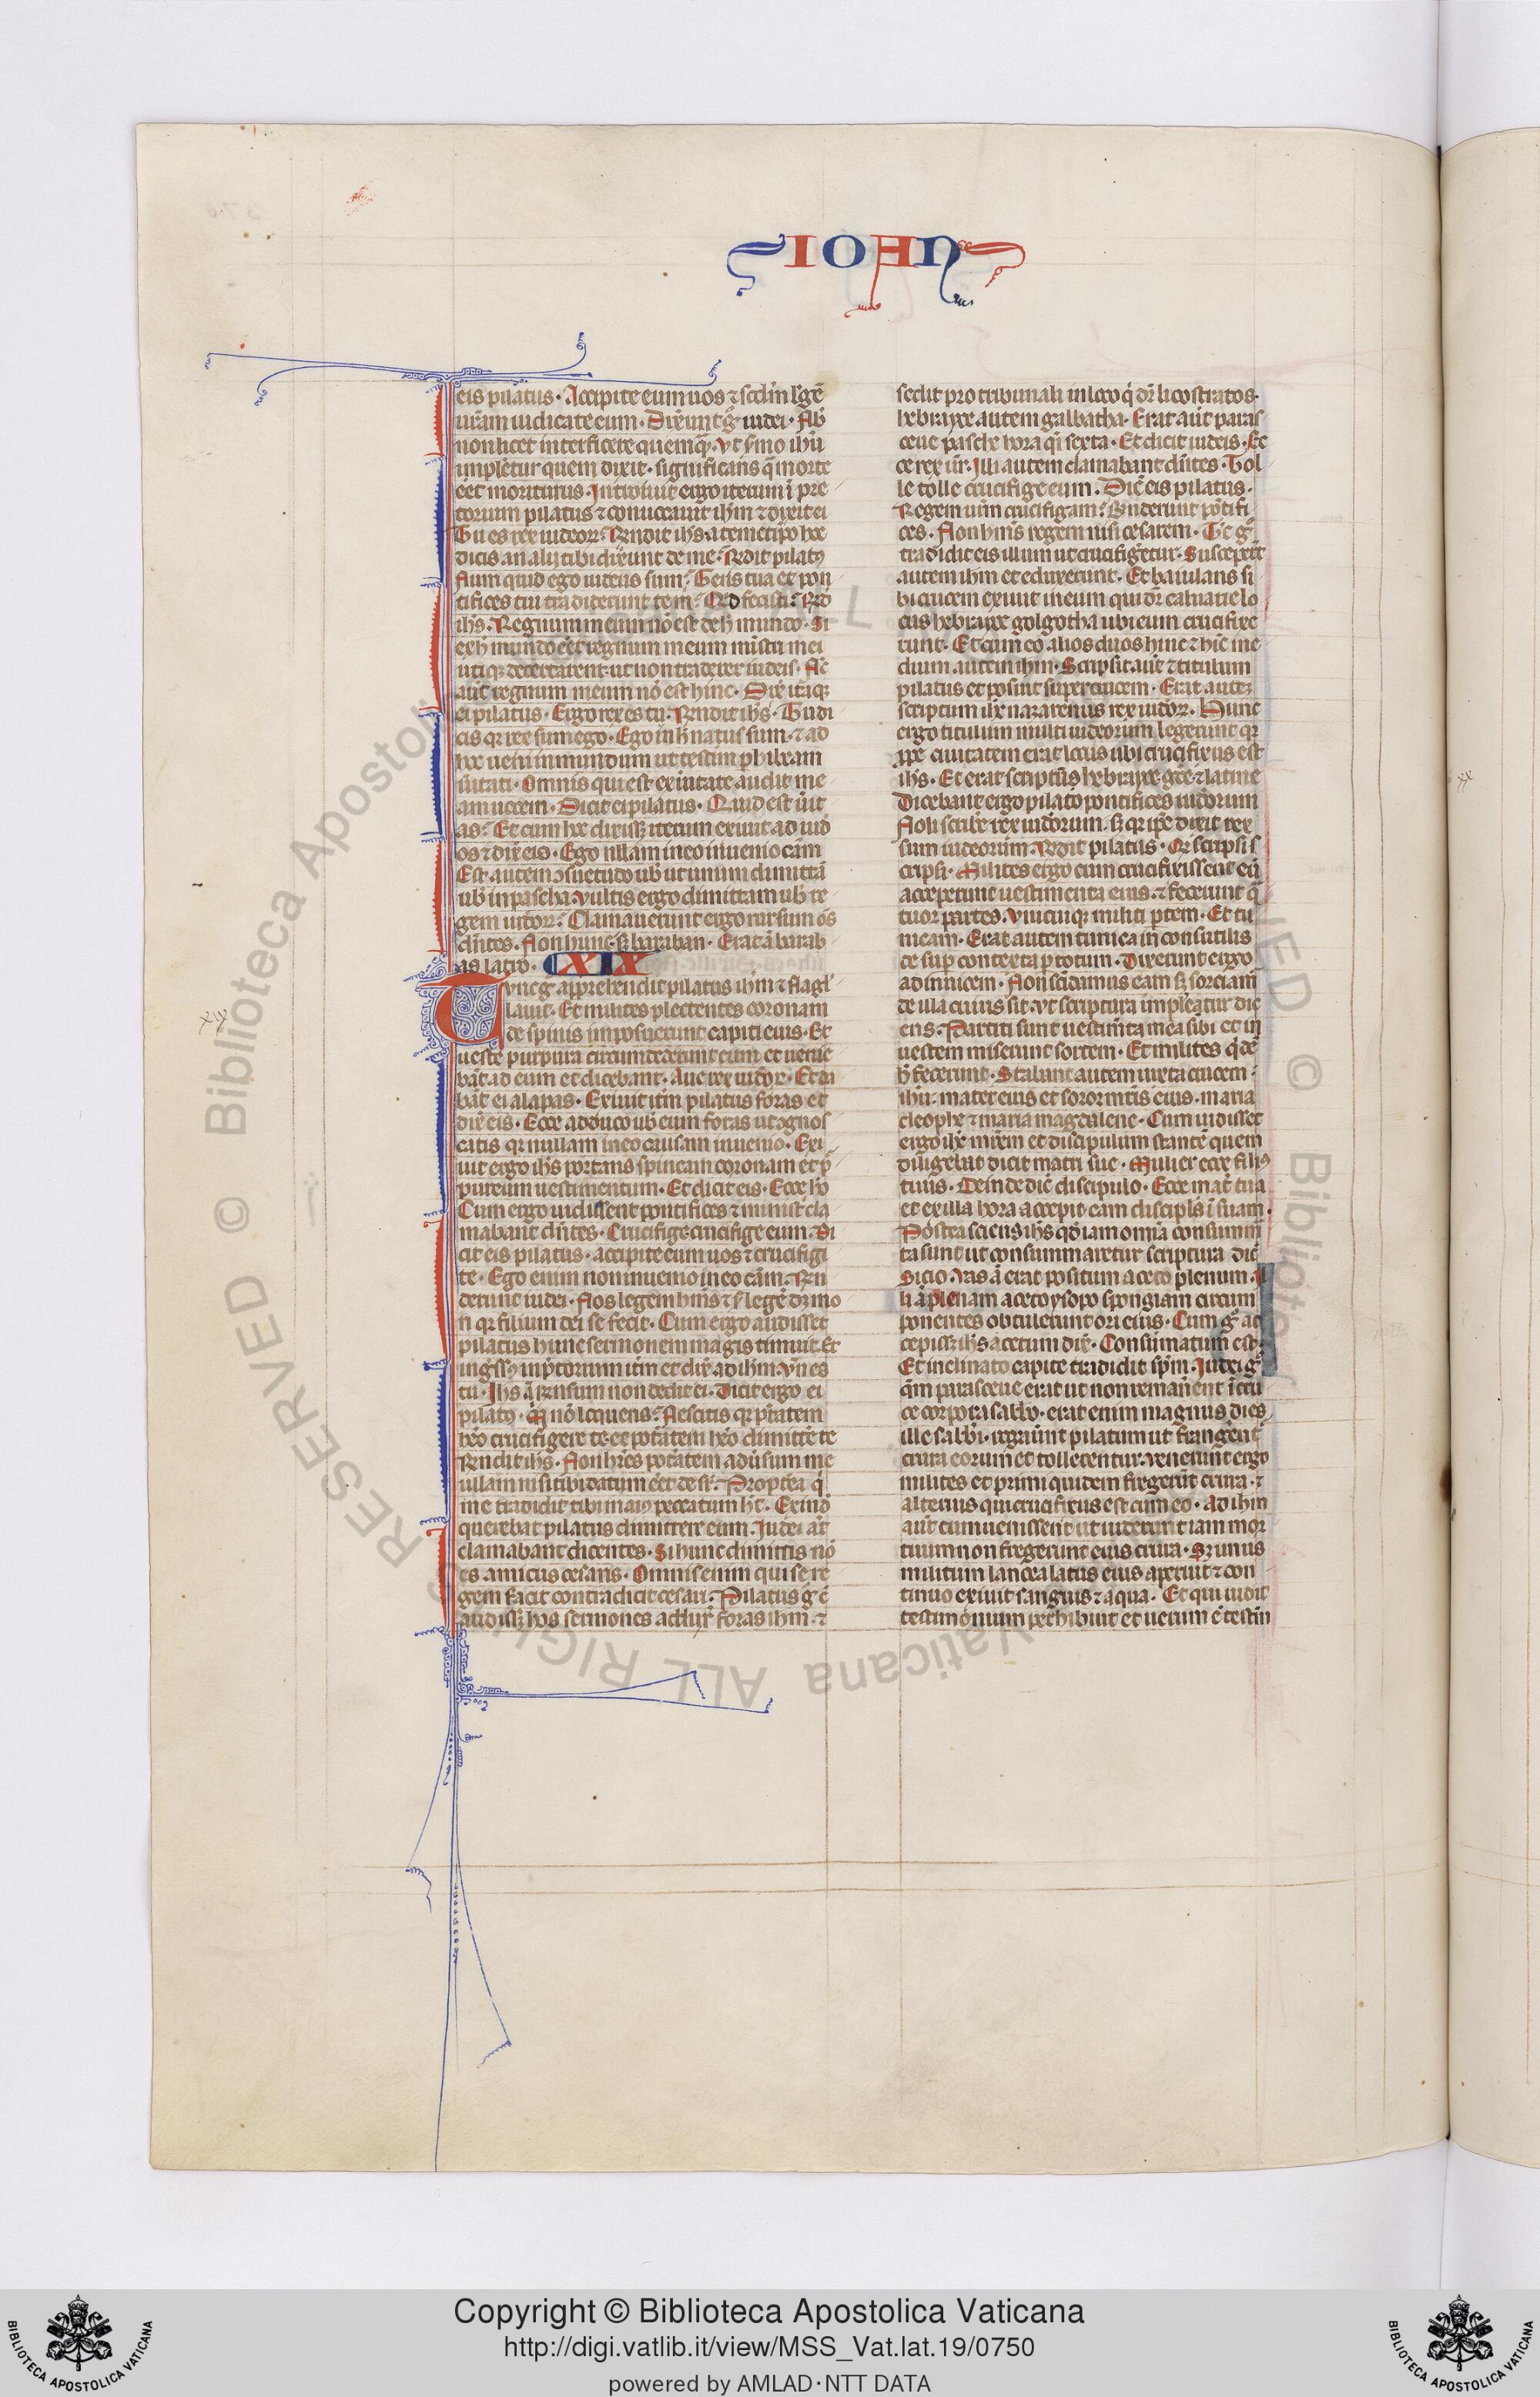 IOAN
eis pilatus. Accipite eum uos ⁊ scd̄m lege̅
ur̄am iudicate eum. Dix̄unt g̊ iudei. Nob̄
non licet interficere quemq̄. Vt s̄mo ihū
impleretur quem dixit. significans q̄ morte
eēt moriturus. Introiuit ergo iterum ī pre
torium pilatus ⁊ conuocauit ihm̄ ⁊ dixit ei
Tu es rex iudeor̄. Rn̄dit ihs̄. a temetip̄o hoc
dicis an alij tibi dixerunt de me. Rn̄dit pilatꝰ
Num quid ego iudeus sum. Gens tua et pon
tifices tui tradiderunt te m̄. Quid fecisti. Rn̄d
ihs̄. Regnum meum nō est de h̄ mundo. Si
ex h̄ mundo eēt regnum meum ministri mei
utiq̄ decertarent. ut non traderer iudeis. Nc̄
aut̄ regnum meum nō est hinc. Dix̄ itaq̄
ei pilatus. Ergo rex es tu. Rn̄dit ihs̄. Tu di
cis qr̄ rex sum ego. Ego in h̄ natus sum. ⁊ ad
hoc ueni in mundum ut testim̄ phibeam
ūitati. Omnis qui est ex ūitate audit me
am uocem. Dicit ei pilatus. Quid est ūit
as. Et cum hoc dixiss̄ iterum exiuit ad iud
os ⁊ dix̄ eis. Ego nullam in eo inuenio cām
Est autem ɔsuetudo ub̄ ut unum dimittā
ub̄ in pascha. Vultis ergo dimittam ub̄ re
gem iudeor̄. Clamauerunt ergo rursum om̄s
dn̄tes. Non hunc. s̄ baraban. Erat ā barab
as latro. XIX
Tunc g̊ apprehendit pilatus ihm̄ ⁊ flagel
lauit. Et milites plectentes coronam
de spinis imposuerunt capiti eius. Et
ueste purpura circumdederunt eum et uenie
bāt ad eum et dicebant. Aue rex iudeor̄. Et da
bāt ei alapas. Exiuit itm̄ pilatus foras et
dix̄ eis. Ecce adduco ub̄ eum foras ut ɔgnos
catis qr̄ nullam in eo causam inuenio. Exi
uit ergo ihs̄ portans spineam coronam et p̄
pureum uestimentum. Et dicit eis. Ecce hō
Cum ergo uidissent pontifices ⁊ ministri cla
mabant dn̄tes. Crucifige crucifige eum. Di
cit eis pilatus. accipite eum uos ⁊ crucifigi
te. Ego enim non inuenio in eo cām. Rn̄
derunt iudei. Nos legem hēm̄s ⁊ s̄ legē dz̄ mo
ri qr̄ filium dei se fecit. Cum ergo audisset
pilatus hunc sermonem magis timuit. Et
ingssꝰ in p̄torium itm̄ et dix̄ ad ihm̄. Vn̄ es
tu. Ihs̄ ā rn̄sum non dedit ei. Dicit ergo ei
pilatꝰ. M̄ nō loqueris. Nescitis qr̄ p̄tatem
hēo crucifigere te. et potātem hēo dimitt̄e te
Rn̄dit ihs̄. Non hrēs potātem adūsum me
ullam nisi tibi datum eēt desr̄. Propterea q̄
me tradidit tibi maiꝰ peccatum ht̄. Exinde
querebat pilatus dimittere eum. Iudei aūt
clamabant dicentes. Si hunc dimittis nō
es amicus cesaris. Omnis enim qui se re
gem facit contradicit cesari. Pilatus g̊ c̄
audiss̄ hos sermones addux̄ foras ihm̄. ⁊
sedit pro tribunali in loco q̄ dr̄ licostratos.
hebrayce autem galbatha. Erat aūt paras
ceue pasche hora q̄i sexta. Et dicit iudeis. Ec
ce rex ūr. Illi autem clamabant dn̄tes. Tol
le tolle crucifige eum. Dic̄ eis pilatus.
Regem ur̄m crucifigam. Rn̄derunt pōtifi
ces. Non hēm̄s regem nisi cesarem. Tc̄ g̊
tradidit eis illum ut crucifigeretur. Susceper̄t
autem ihm̄ et eduxerunt. Et baiulans si
bi crucem exiuit in eum qui dr̄ caluarie lo
cus hebrayce golgotha ubi eum crucifixe
runt. Et cum eo alios duos hinc ⁊ hīc me
dium autem ihm̄. Scripsit aūt ⁊ titulum
pilatus et posuit super crucem. Erat autez̄
scriptum ihc̄ nazarenus rex iudeor̄. Hunc
ergo titulum multi iudeorum legerunt qr̄
ꝓpe ciuitatem erat locus ubi crucifixus est
ihs̄. Et erat scriptum hebrayce grece ⁊ latine
Dicebant ergo pilato pontifices iudeorum
Noli scribe rex iudeorum. s̄ qr̄ ip̄e dixit rex
sum iudeorum. Rn̄dit pilatus. Q̄ scripsi s
cripsi. Milites ergo cum crucifixissent eū
acceperunt uestimenta eius. ⁊ fecerunt q̄
tuor partes. Vnicuiq̄ militi ptem. Et tu
nicam. Erat autem tunica in consutilis
de sup̄ contexta p totum. Dixerunt ergo
ad inuicem. Non scidamus eam s̄ sorciam̄
de illa cuius sit. Vt scriptura impleatur dic
ens. Partiti sunt uestim̄ta mea sibi et in
uestem miserunt sortem. Et milites q̄dē
h̄ fecerunt. Stabant autem iuxta crucem
ihū. mater eius et soror mr̄is eius. maria
cleophe ⁊ maria magdalene. Cum uidisset
ergo ihc̄ mr̄em et discipulum stantē quem
diligebat dicit matri sue. Mulier ecce filiꝰ
tuus. Deinde dic̄ discipulo. Ecce mat̄ tua
et ex illa hora accepit eam discipls̄ ī suam.
Postea sciens ihs̄ q̄diam omnia consumm̄
ta sunt ut consummaretur scriptura dic̄
Sicio. Vas ā erat positum aceto plenum. Il
li ā plenam aceto ysopo spongiam circum
ponentes obtulerunt ori eius. Cum g̊ ac
cepiss̄ ihs̄ acetum dix̄. Consummatum est.
Et inclinato capite tradidit spm̄. Iudei g̊
qm̄ parasceue erat ut non remanēent ī cru
ce corpora sabbo. erat enim magnus dies
ille sabbi. rogauūnt pilatum ut frangerent̄
crura eorum et tollerentur. Venerunt ergo
milites et primi quidem fregerūt crura. ⁊
alterius qui crucifixus est cum eo. Ad ihm̄
aūt cum uenissent ut uiderunt iam mor
tuum non fregerunt eius crura. Sz̄ unus
militum lancea latus eius aperuit ⁊ con
tinuo exiuit sanguis ⁊ aqua. Et qui uidit
testimōnium perhibuit et uerum ē testim̄
xix
xx
© Biblioteca Apostolica Vaticana ALL RIGHTS RESERVED
Copyright © Biblioteca Apostolica Vaticana
http://digi.vatlib.it/view/MSS_Vat.lat.19/0750
powered by AMLAD·NTT DATA
BIBLIOTECA APOSTOLICA VATICANA
BIBLIOTECA APOSTOLICA VATICANA